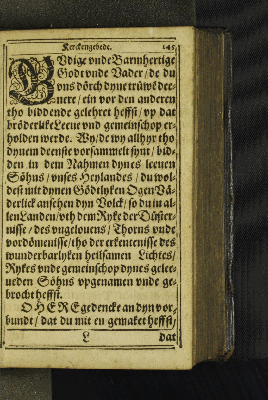 Kerckengebede. 145
GVdige vnde Barmhertige
Godt vnde Vader / de du
vns dörch dyne trüwe dee-
nere / ein vor den anderen
tho biddende gelehret heffst / vp dat
bröderlike Leeue vnd gemeinschop er-
holden werde. Wy / de wy allhyr tho
dynem denste vorsammelt synt / bid-
den in dem Nahmen dynes leeuen
Söhns / vnses Heylandes / du wol-
dest mit dynen Gödtlyken Ogen Vä-
derlick ansehen dyn Volck / so du in al-
len Landen / vth dem Ryke der Düster-
nisse / des vngelouens / Thorns vnde
vordömenisse / tho der erkentenisse des
wunderbarlyken heilsamen Lichtes /
Rykes vnde gemeinschop dynes gelee-
ueden Söhns vpgenamen vnde ge-
brocht heffst.
O HERE gedencke an dyn vor-
bundt / dat du mit en gemaket heffst /
L dat